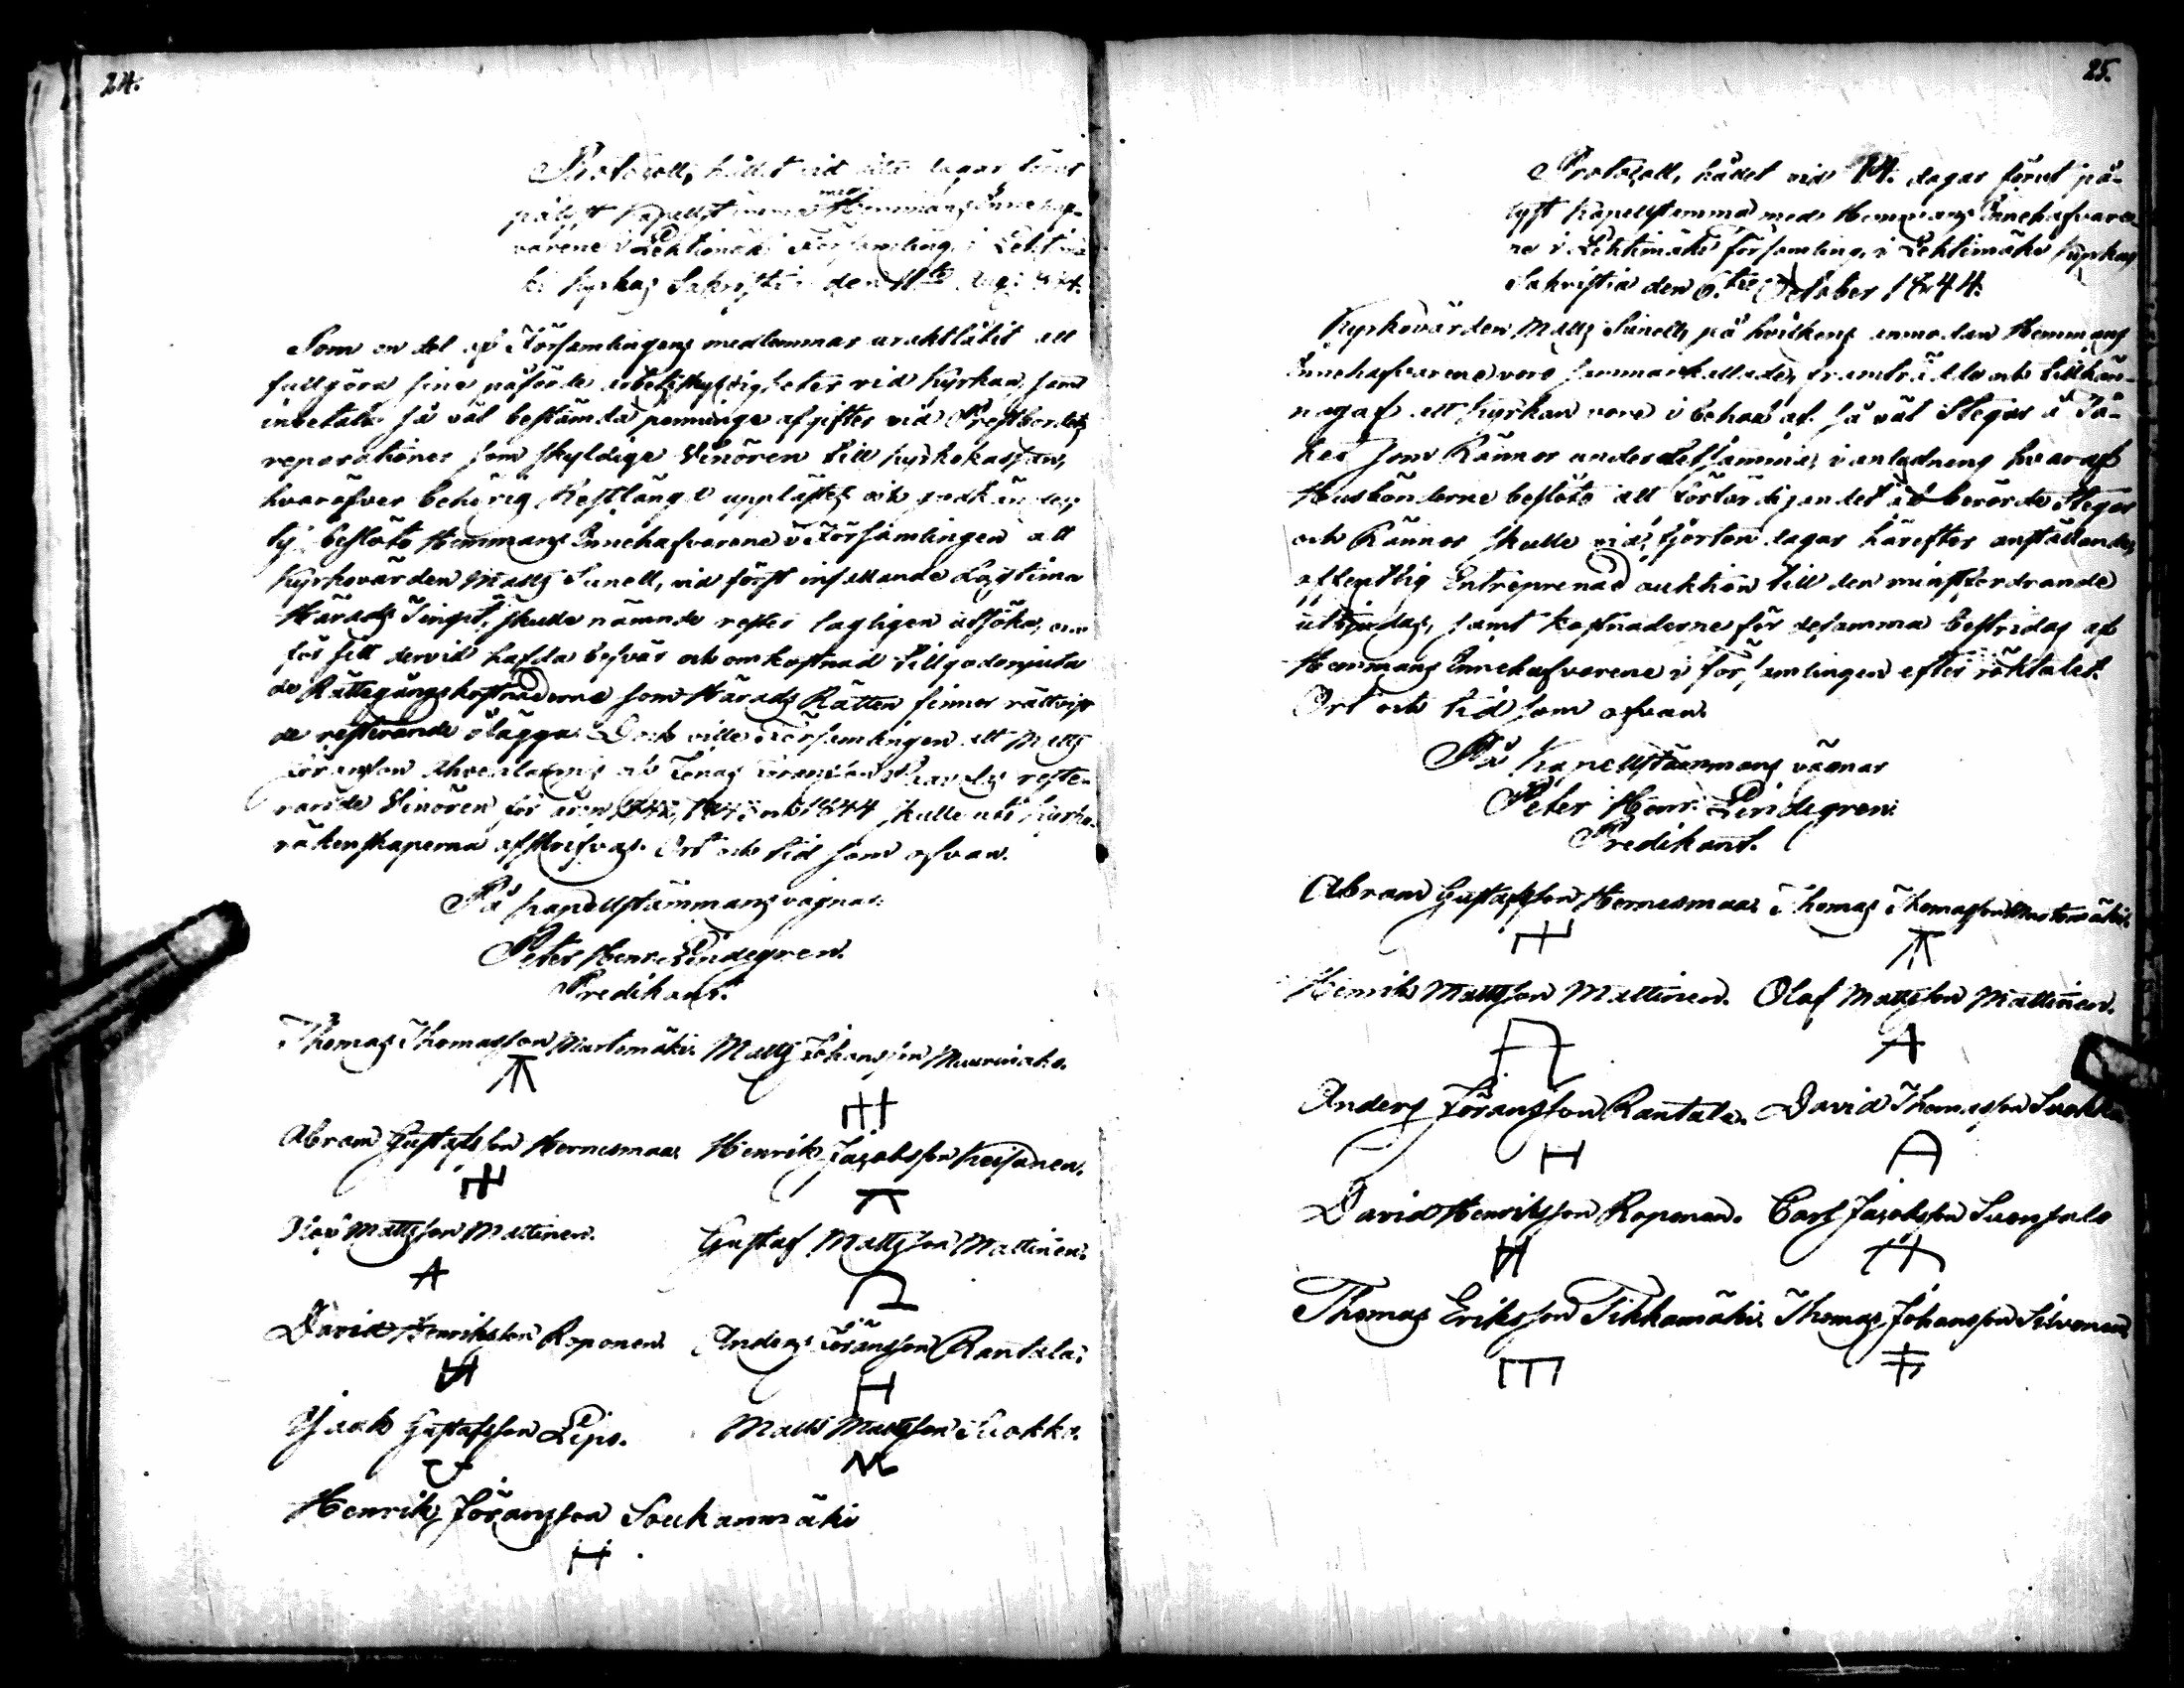 24.
Protocoll, hållit vid åtta dagar förut
pålyst Kapellstämma med Hemmans Innehaf-
varene i Lehtimäki Församling, i Lehtimä-
ki Kyrkas Sakristia den 11te Aug: 1844.
Som en del af Församlingens medlemmar uraktlåtit att
fullgöra sine påförde arbetsskyldigheter vid Kyrkan, samt
inbetala så väl bestämda penninge afgifter vid Prestbordets
reparationer som skyldige Vinören till Kyrkokassan,
hvaröfver behörig Restlängd upplästes och godkändes,
ty beslöto Hemmans Innehafvarene i Församlingen att
Kyrkovärden Matts Sunell, vid först infallande Lagtima
Härads Tinget, skulle nämnde rester lagligen utsöka, och
för sitt dervid hafda besvär och omkostnad tillgodonjuta
de Rättegångskostnaderne som Härads Rätten finner rättvist
de resterande ålägga. Dock ville Församlingen att Matts
Göransson Ahvenlammis och Jonas Göransson reste-
rande Vinören för åren 1842, 1843 och 1844 skulle uti Kyrko-
räkenskaperna afskrifvas. Ort och tid som ofvan.
På Kapellstämmans vägnar:
Peter Henr: Lindegren.
Predikant.
Thomas Thomasson Martomäki. Matts Johansson
Abram Gustafsson Hernesmaa. Henrik Jacobsson Keisanen.
Olof Mattsson Mattinen. Gustaf Mattsson Mattinen.
David Henriksson Roponen. Anders Göransson Rantala.
Jacob Gustafsson Lipo. Matts Mattsson Suokko.
Henrik Göransson Soukanmäki
25.
Protocoll, hållit vid 14. dagar förut på-
lyst Kapellstämma med Hemmans Innehafvare-
ne i Lehtimäki församling, i Lehtimäki Kyrkas
Sakristia den 6.te October 1844.
Kyrkovärden Matts Sunell, på hvilkens anmodan Hemmans
Innehafvarene voro sammankallade, framträdde och tillkän-
nagaf att Kyrkan vore i behof af så väl Stegar å Ta-
ket som Rännor under detsamma, i anledning hvaraf
Husbönderne beslöto att förfärdigandet af berörde Stegar
och Rännor skulle vid fjorton dagar härefter anställande
offentlig Entreprenad auktion till den minstfordrande
utbjudas, samt kostnaderne för desamma bestridas af
Hemmans Innehafvarene i församlingen efter röktalet.
Ort och tid som ofvan.
På Kapellstämmans vägnar
Peter Henr: Lindegren.
Predikant.
Abram Gustafsson Hernesmaa. Thomas Thomasson Martomäki.
Henrik Mattsson Mattinen. Olof Mattsson Mattinen.
Anders Göransson Rantala. David Thomasson Suokko
David Henriksson Roponen. Carl Jacobsson Suensalo
Thomas Eriksson Tikkamäki. Thomas Johansson Silvonen